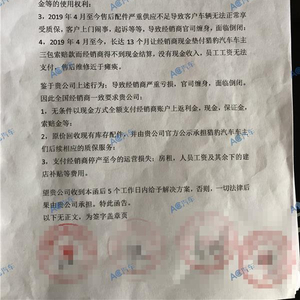 金等的使用权利；
3，2019年4月至今售后配件严重供应不足导致客户车辆无法正常享
受质保，客户上门闹事，起诉等等，导致经销商官司缠身，面临倒闭；
4，2019年4月至今，长达13个月让经销商现金垫付猎豹汽车车主
三包索赔款而经销商得不到现金结算，没有现金收入，员工工资无法
支付，售后维修近于瘫痪。
鉴于贵公司上述行为；导致经销商严重亏损，官司缠身，面临倒闭，
因此全国经销商一致要求贵公司，
1、无条件以现金方式全额支付经销商账户上返利金，现金，保证金，
索赔金等；
2、原价回收现有库存配件，并由贵公司官方公示承担猎豹汽车车主
们后续相应的质保服务；
3、支付经销商停产至今的运营损失；房租，人员工资及其余下的建
店补贴等费用。
望贵公司收到本函后5个工作日内给予解决方案，否则，一切法律后
果由贵公司承担。特此函告。
以下无正文，为签字盖章页